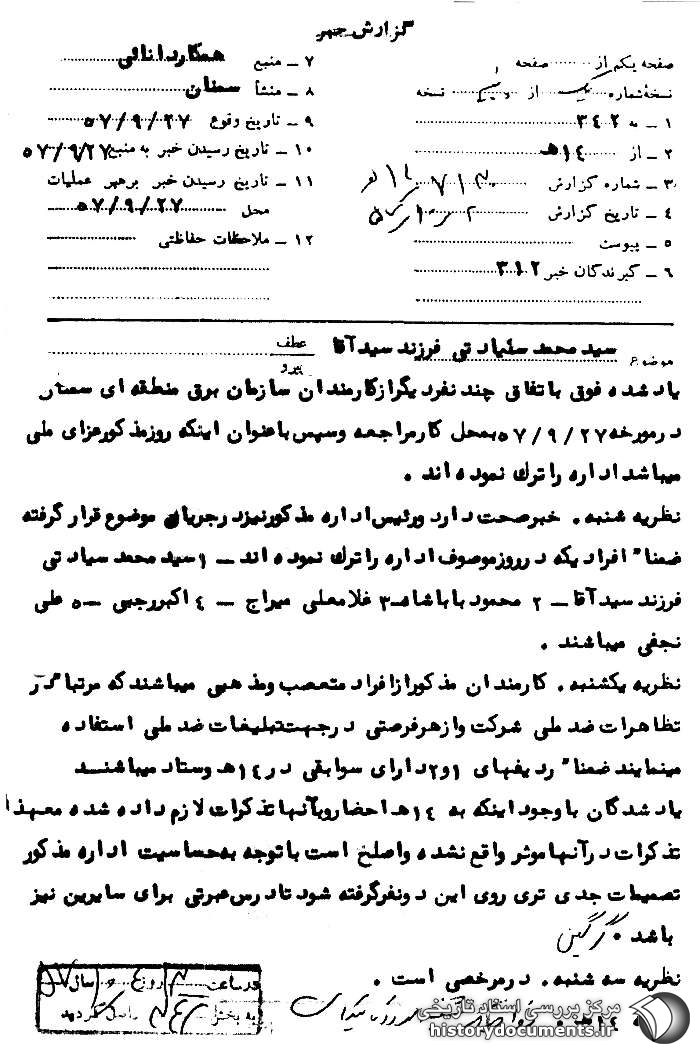 گزارش خبر
صفحه یکم از ..... صفحه
نسخهٔ شماره یک از یک نسخه
۱ ـ به ۳۴۲
۲ ـ از ۱۴هـ
۳ ـ شماره گزارش
۴ ـ تاریخ گزارش
۵ ـ پیوست
۶ ـ گیرندگان خبر ۳۱۲
۷ ـ منبع همکار دانائی
۸ ـ منشأ سمنان
۹ ـ تاریخ وقوع ۵۷/۹/۲۷
۱۰ ـ تاریخ رسیدن خبر به منبع ۵۷/۹/۲۷
۱۱ ـ تاریخ رسیدن خبر برهبر عملیات
محل ۵۷/۹/۲۷
۱۲ ـ ملاحظات حفاظتی
موضوع سید محمد سیادتی فرزند سید آقا عطف
پیرو
یاد شده فوق باتفاق چند نفر دیگر از کارمندان سازمان برق منطقه ای سمنان
در مورخه ۵۷/۹/۲۷ بمحل کار مراجعه وسپس باعنوان اینکه روز مذکور عزای ملی
میباشد اداره را ترک نموده اند .
نظریه شنبه . خبر صحت دارد ورئیس اداره مذکور نیز در جریان موضوع قرار گرفته
ضمنا" افرادیکه در روز موصوف اداره را ترک نموده اند ـ ۱ سید محمد سیادتی
فرزند سید آقا ـ ۲ محمود باباشاه ـ ۳ غلامعلی میراج ـ ۴ اکبر رجبی ـ ۵ علی
نجفی میباشند .
نظریه یکشنبه . کارمندان مذکور از افراد متعصب ومذهبی میباشند که مرتبا" در
تظاهرات ضد ملی شرکت واز هر فرصتی در جهت تبلیغات ضد ملی استفاده
مینمایند ضمنا" ردیفهای ۱و۲ دارای سوابقی در ۱۴هـ وستاد میباشند
یاد شدگان با وجود اینکه به ۱۴هـ احضار وبآنها تذکرات لازم داده شده معهذا
تذکرات در آنها موثر واقع نشده واصلح است با توجه به حساسیت اداره مذکور
تصمیمات جدی تری روی این دو نفر گرفته شود تا درس عبرتی برای سایرین نیز
باشد . گرگین
نظریه سه شنبه . در مرخصی است .
در ساعت روز سال ۵۷
به بخش واصل گردید
مرکز بررسی اسناد تاریخی
historydocuments.ir